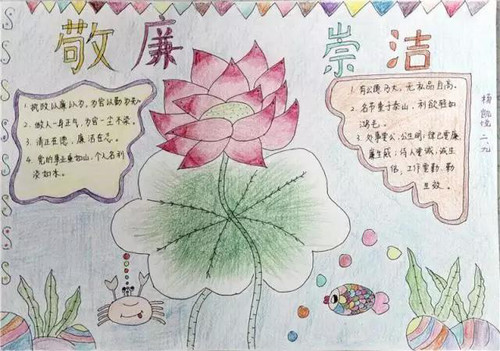 敬廉崇洁
1. 执政以廉以为,为官以勤为先。
2. 做人一身正气,为官一尘不染。
3. 清正在德,廉洁在志。
4. 党的事业重如山,个人名利
淡如水。
1. 有公德乃大,无私品自高。
2. 名节重于泰山,利欲轻如
鸿毛。
3. 办事要公,公生明;律己要廉
廉生威;待人要诚,诚生
信;工作要勤,勤
生效。
杨
二.九